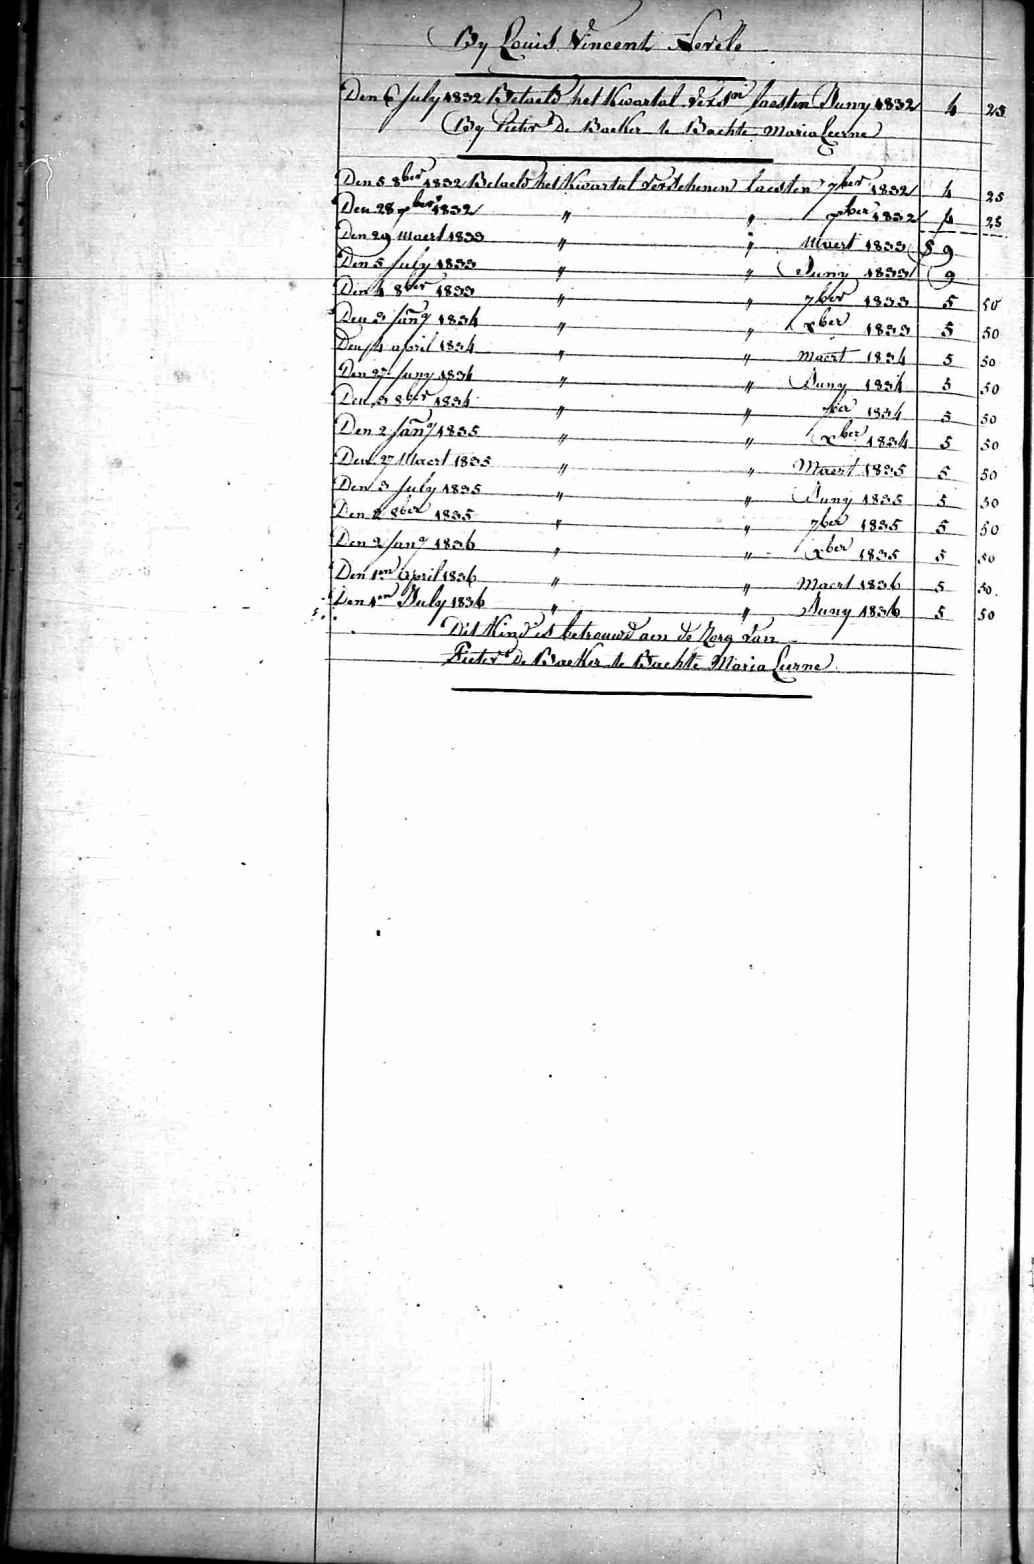 By Louis Vincent Nevele
Den 6 July 1832 Betaeld het Kwartal Versn laesten Juny 1832 4 25
By Pieter De Baeker te Bachte Maria Leerne
Den 5 8ber 1832 Betaeld het Kwartal Verschenen laesten 7ber 1832 4 25
Den 28 xber 1832 " " xber 1832 4 25
Den 29 Maert 1833 " " Maert 1833 9
Den 5 July 1833 " " Juny 1833 9
Den 4 8ber 1833 " " 7ber 1833 5 50
Den 3 Jany 1834 " " xber 1833 5 50
Den 4 april 1834 " " Maert 1834 5 50
Den 27 Juny 1834 " " Juny 1834 5 50
Den 3 8ber 1834 " " 7ber 1834 5 50
Den 2 Jany 1835 " " xber 1834 5 50
Den 27 Maert 1835 " " Maert 1835 5 50
Den 3 July 1835 " " Juny 1835 5 50
Den 2 8ber 1835 " " 7ber 1835 5 50
Den 2 Jany 1836 " " xber 1835 5 50
Den 1en April 1836 " " Maert 1836 5 50
Den 1en July 1836 " " Juny 1836 5 50
Dit Kind is betrouwd aen de Zorg van
Pieter De Baeker te Bachte Maria Leerne